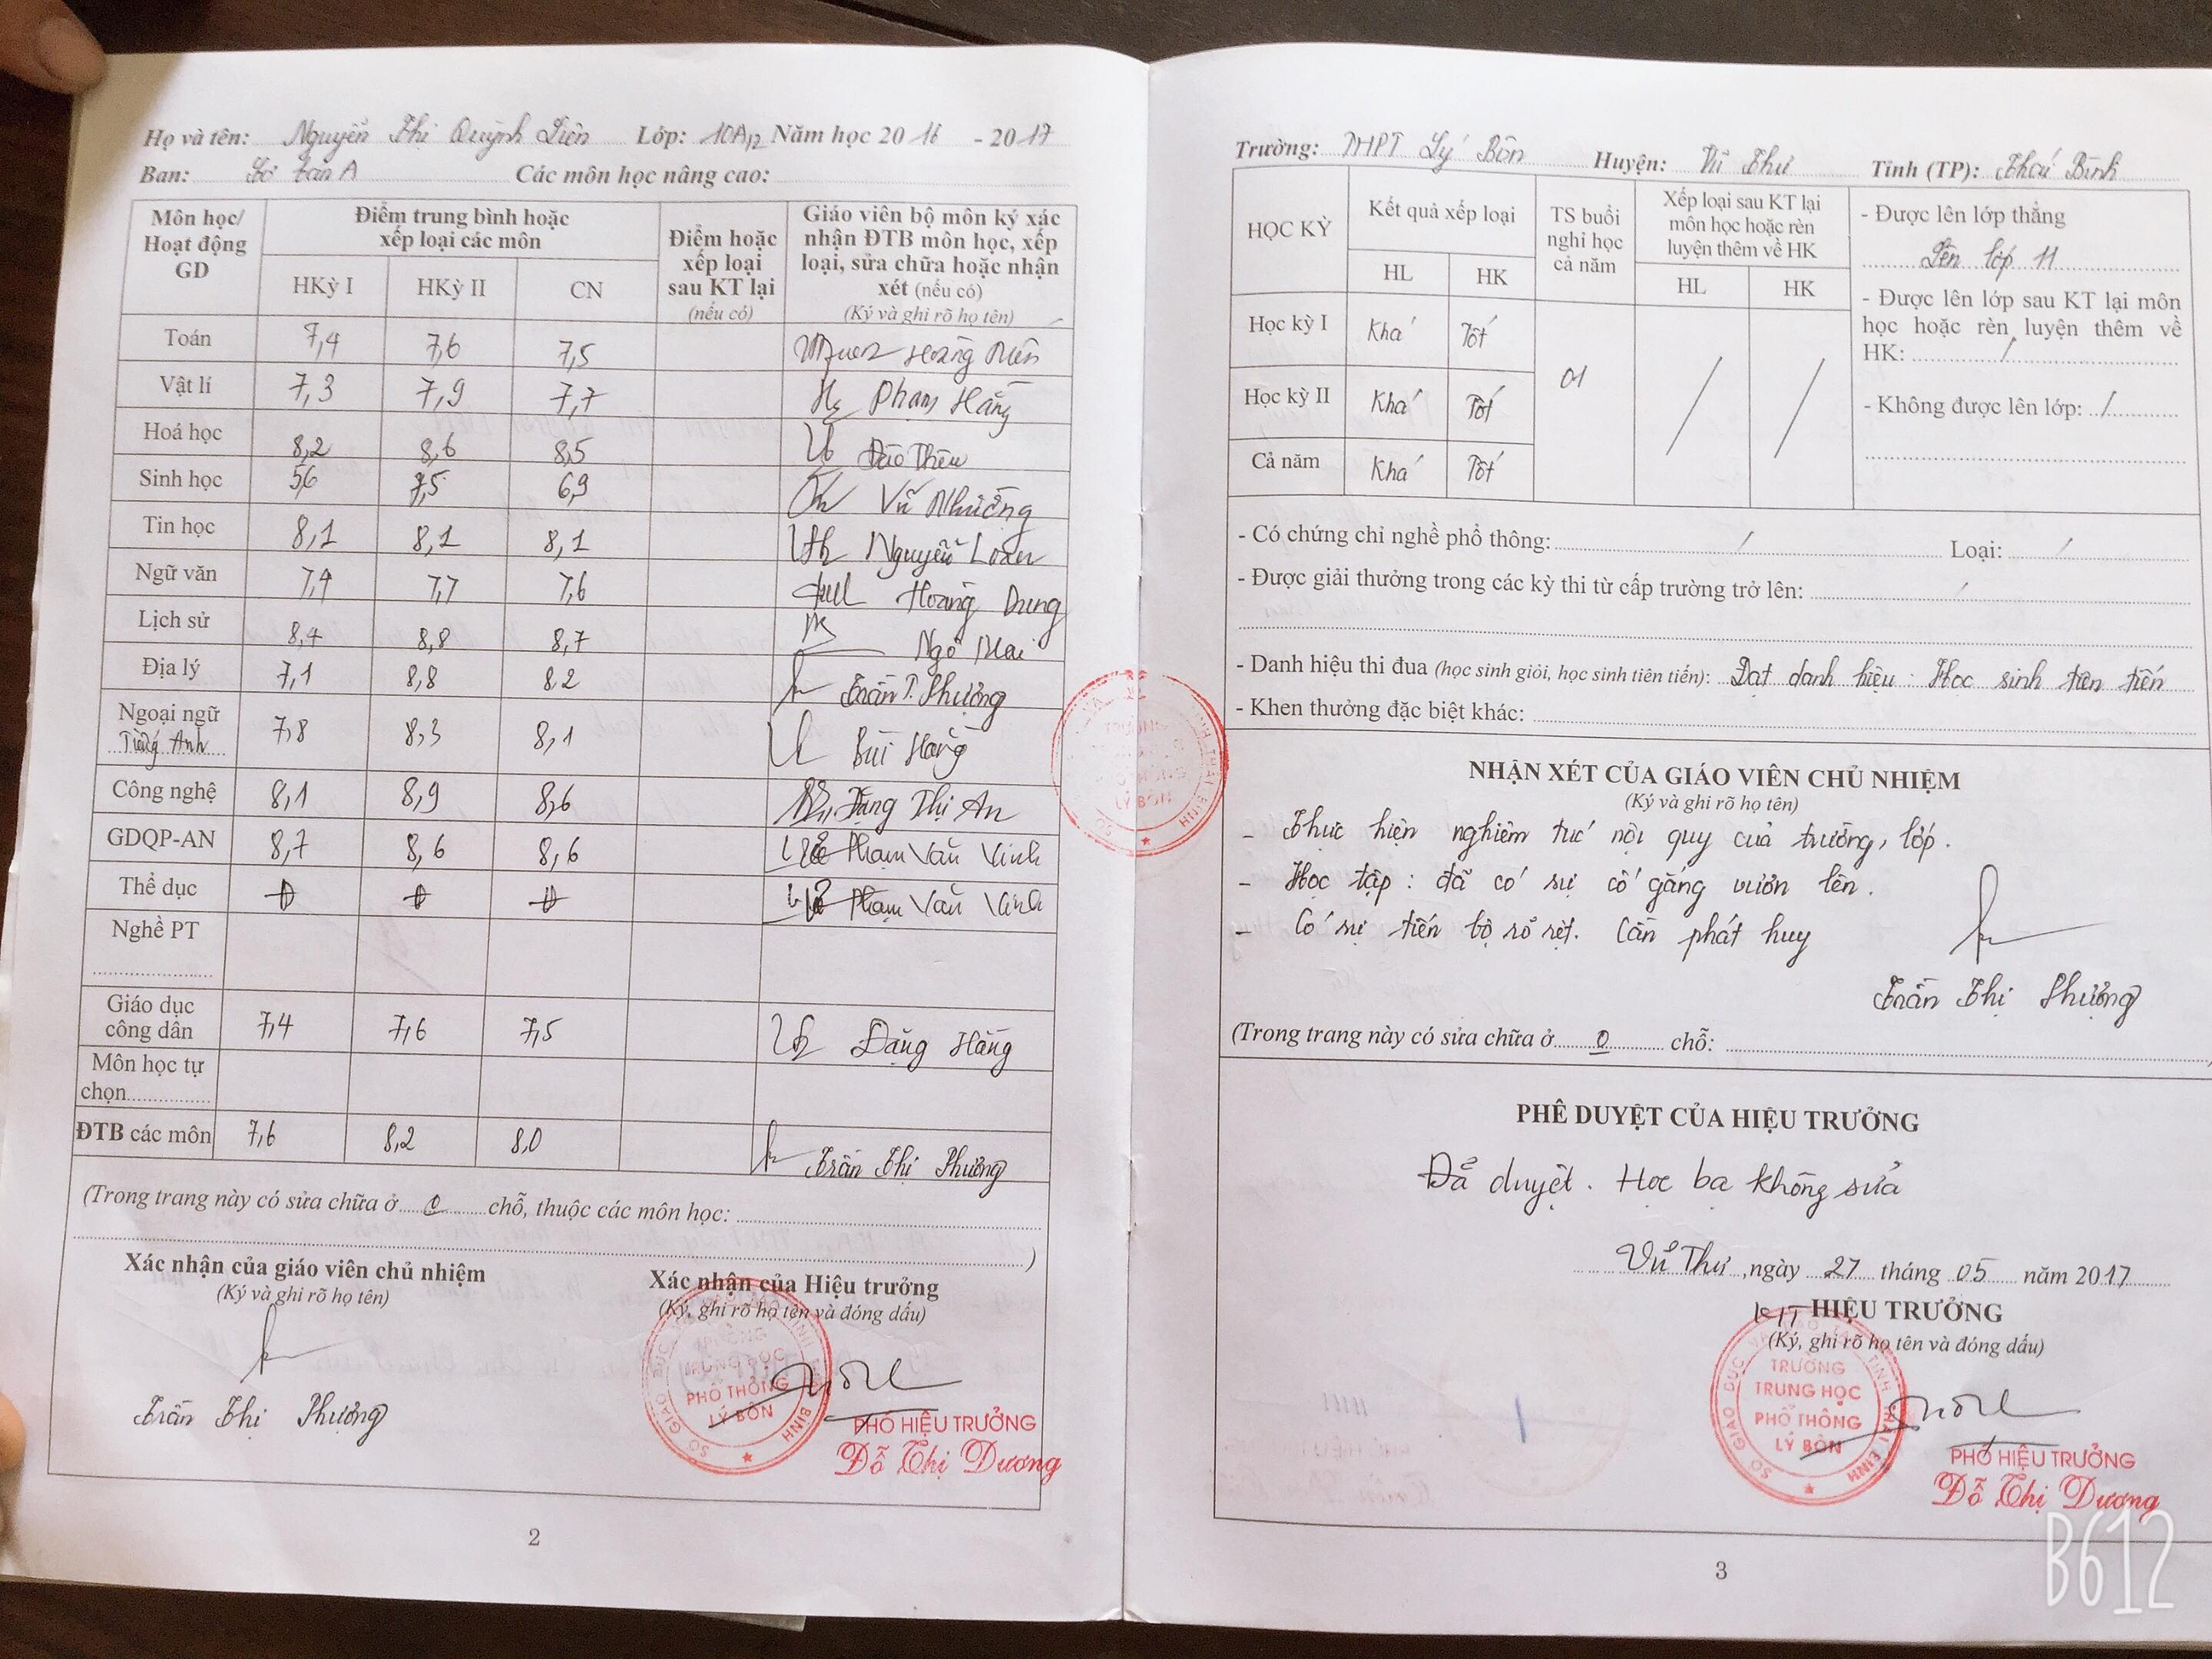 Họ và tên: Nguyễn Thị Quỳnh Liên Lớp: 10A12 Năm học 2016 - 2017
Ban: Cơ bản A Các môn học nâng cao:
Môn học/ Hoạt động GD
Điểm trung bình hoặc xếp loại các môn
HKỳ I HKỳ II CN
Điểm hoặc xếp loại sau KT lại (nếu có)
Giáo viên bộ môn ký xác nhận ĐTB môn học, xếp loại, sửa chữa hoặc nhận xét (nếu có)
(Ký và ghi rõ họ tên)
Toán 7,4 7,6 7,5 Hoàng
Vật lí 7,3 7,9 7,7 Phạm Hằng
Hoá học 8,2 8,6 8,5 Đào Thêu
Sinh học 5,6 7,5 6,9 Vũ Nhưỡng
Tin học 8,1 8,1 8,1 Nguyễn Loan
Ngữ văn 7,4 7,7 7,6 Hoàng Dung
Lịch sử 8,4 8,8 8,7 Ngô Mai
Địa lý 7,1 8,8 8,2 Trần T. Phượng
Ngoại ngữ Tiếng Anh 7,8 8,3 8,1 Bùi Hằng
Công nghệ 8,1 8,9 8,6 Đặng Thị An
GDQP-AN 8,7 8,6 8,6 Phạm Văn Vinh
Thể dục Đ Đ Đ Phạm Văn Vinh
Nghề PT
Giáo dục công dân 7,4 7,6 7,5 Đặng Hằng
Môn học tự chọn
ĐTB các môn 7,6 8,2 8,0 Trần Thị Phượng
(Trong trang này có sửa chữa ở 0 chỗ, thuộc các môn học: )
Xác nhận của giáo viên chủ nhiệm
(Ký và ghi rõ họ tên)
Trần Thị Phượng
Xác nhận của Hiệu trưởng
(Ký, ghi rõ họ tên và đóng dấu)
TRƯỜNG
TRUNG HỌC
PHỔ THÔNG
LÝ BÔN
PHÓ HIỆU TRƯỞNG
Đỗ Thị Dương
2
Trường: THPT Lý Bôn Huyện: Vũ Thư Tỉnh (TP): Thái Bình
HỌC KỲ
Kết quả xếp loại
HL HK
TS buổi nghỉ học cả năm
Xếp loại sau KT lại môn học hoặc rèn luyện thêm về HK
HL HK
Học kỳ I Khá Tốt
Học kỳ II Khá Tốt
Cả năm Khá Tốt
01
- Được lên lớp thẳng
Lên lớp 11
- Được lên lớp sau KT lại môn học hoặc rèn luyện thêm về HK: /
- Không được lên lớp: /
- Có chứng chỉ nghề phổ thông: / Loại: /
- Được giải thưởng trong các kỳ thi từ cấp trường trở lên: /
- Danh hiệu thi đua (học sinh giỏi, học sinh tiên tiến): Đạt danh hiệu: Học sinh tiên tiến
- Khen thưởng đặc biệt khác:
NHẬN XÉT CỦA GIÁO VIÊN CHỦ NHIỆM
(Ký và ghi rõ họ tên)
- Thực hiện nghiêm túc nội quy của trường, lớp.
- Học tập: đã có sự cố gắng vươn lên.
- Có sự tiến bộ rõ rệt. Cần phát huy
Trần Thị Phượng
(Trong trang này có sửa chữa ở 0 chỗ:
PHÊ DUYỆT CỦA HIỆU TRƯỞNG
Đã duyệt. Học bạ không sửa
Vũ Thư, ngày 27 tháng 05 năm 2017
KT HIỆU TRƯỞNG
(Ký, ghi rõ họ tên và đóng dấu)
SỞ GIÁO DỤC VÀ ĐÀO TẠO TỈNH THÁI BÌNH
TRƯỜNG
TRUNG HỌC
PHỔ THÔNG
LÝ BÔN
PHÓ HIỆU TRƯỞNG
Đỗ Thị Dương
3
B612